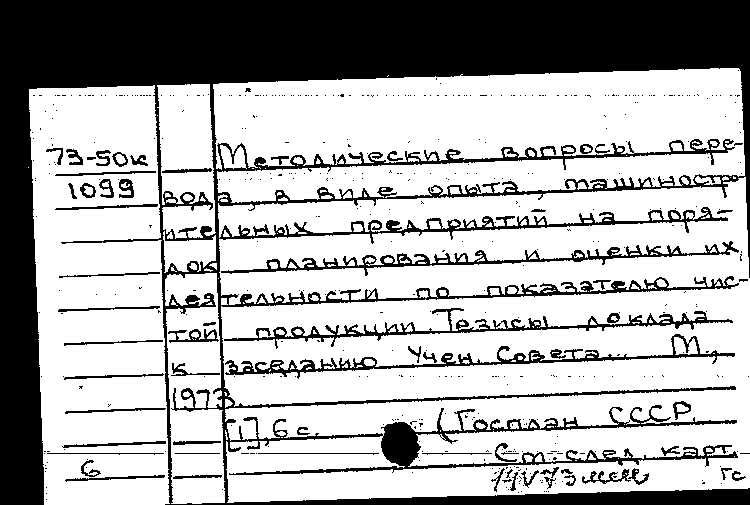 73-50к Методические вопросы пере-
1099 вода, в виде опыта, машиностро-
ительных предприятий на поря-
док планирования и оценки их
деятельности по показателю чис-
той продукции. Тезисы доклада
к заседанию Учен. Совета... М.,
1973.
[1], 6 с. (Госплан СССР.
См. след. карт.
6 14 V 73 Гс